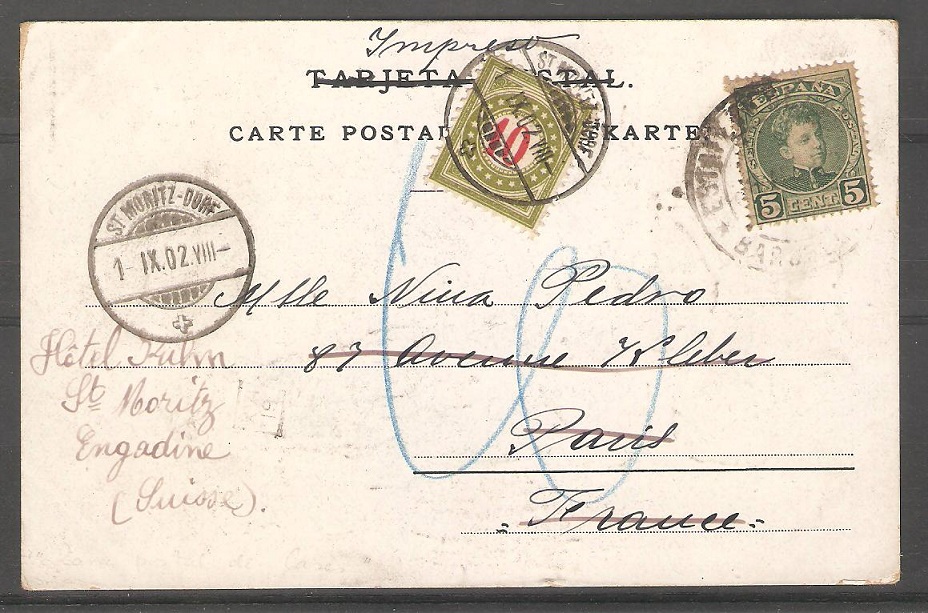 Impreso
TARJETA POSTAL.
CARTE POSTAL KARTE
10
ST MORITZ-DORF
1 IX.02.VIII
ESPAÑA
5 CENT 5
BAR
ST MORITZ-DORF
1- IX.02.VIII-
Mlle Nina Pedro
87 Avenue Kleber
Paris
France
Hôtel Kuhn
St Moritz
Engadine
(Suisse).